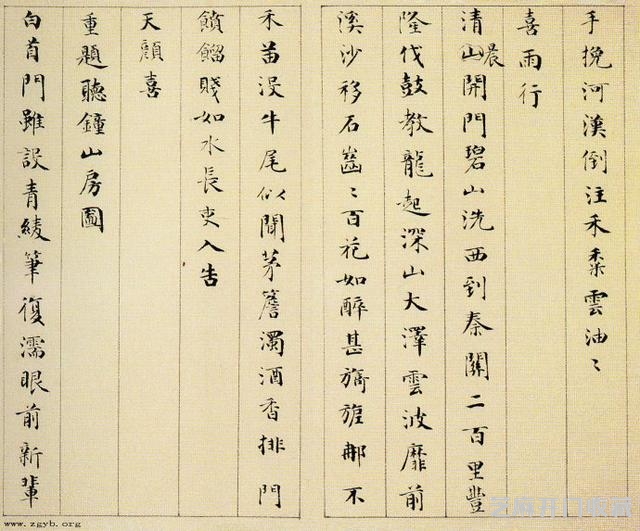 手挽河漢倒注禾黍雲油〻
喜雨行
清晨開門碧山洗西到秦關二百里豐
隆伐鼓教龍起深山大澤雲波靡前
溪沙移石齒〻百花如醉甚旖旎那不
禾苗沒牛尾似聞茅簷濁酒香排門
饋餾賤如水長吏入告
天顏喜
重題聽鐘山房圖
白首門雖設青綾筆復濡眼前新輩
www.zgyb.org